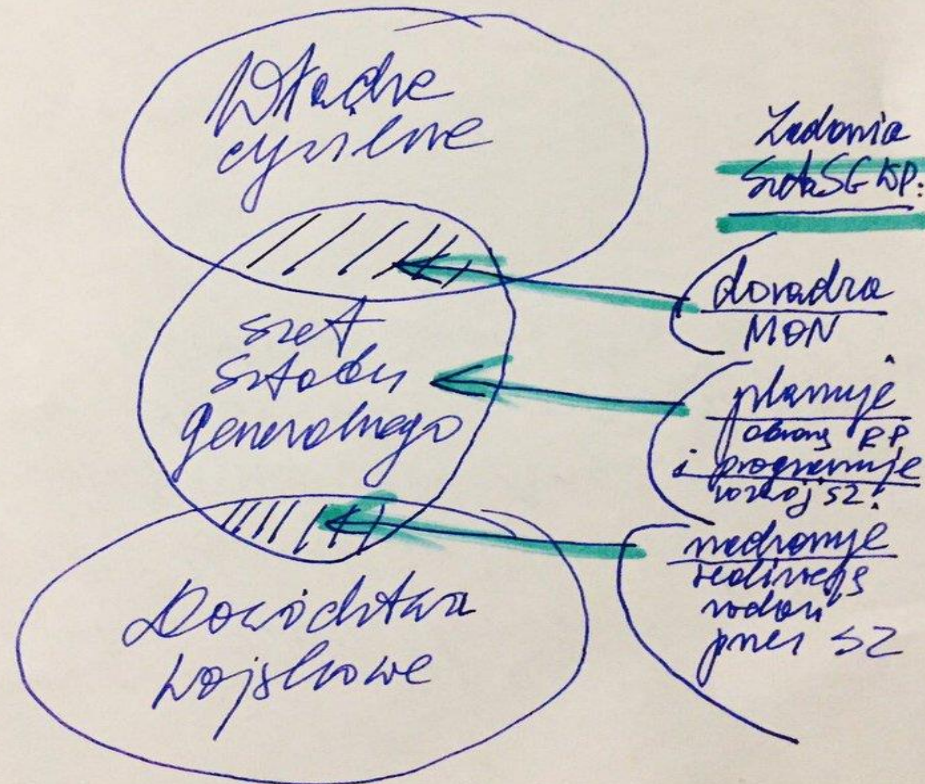 Władze
cywilne
szef
Sztabu
Generalnego
Dowództwa
wojskowe
Zadania
Szefa SG WP:
doradza
MON
planuje
obronę RP
i programuje
rozwój SZ
nadzoruje
realizację
zadań
przez SZ